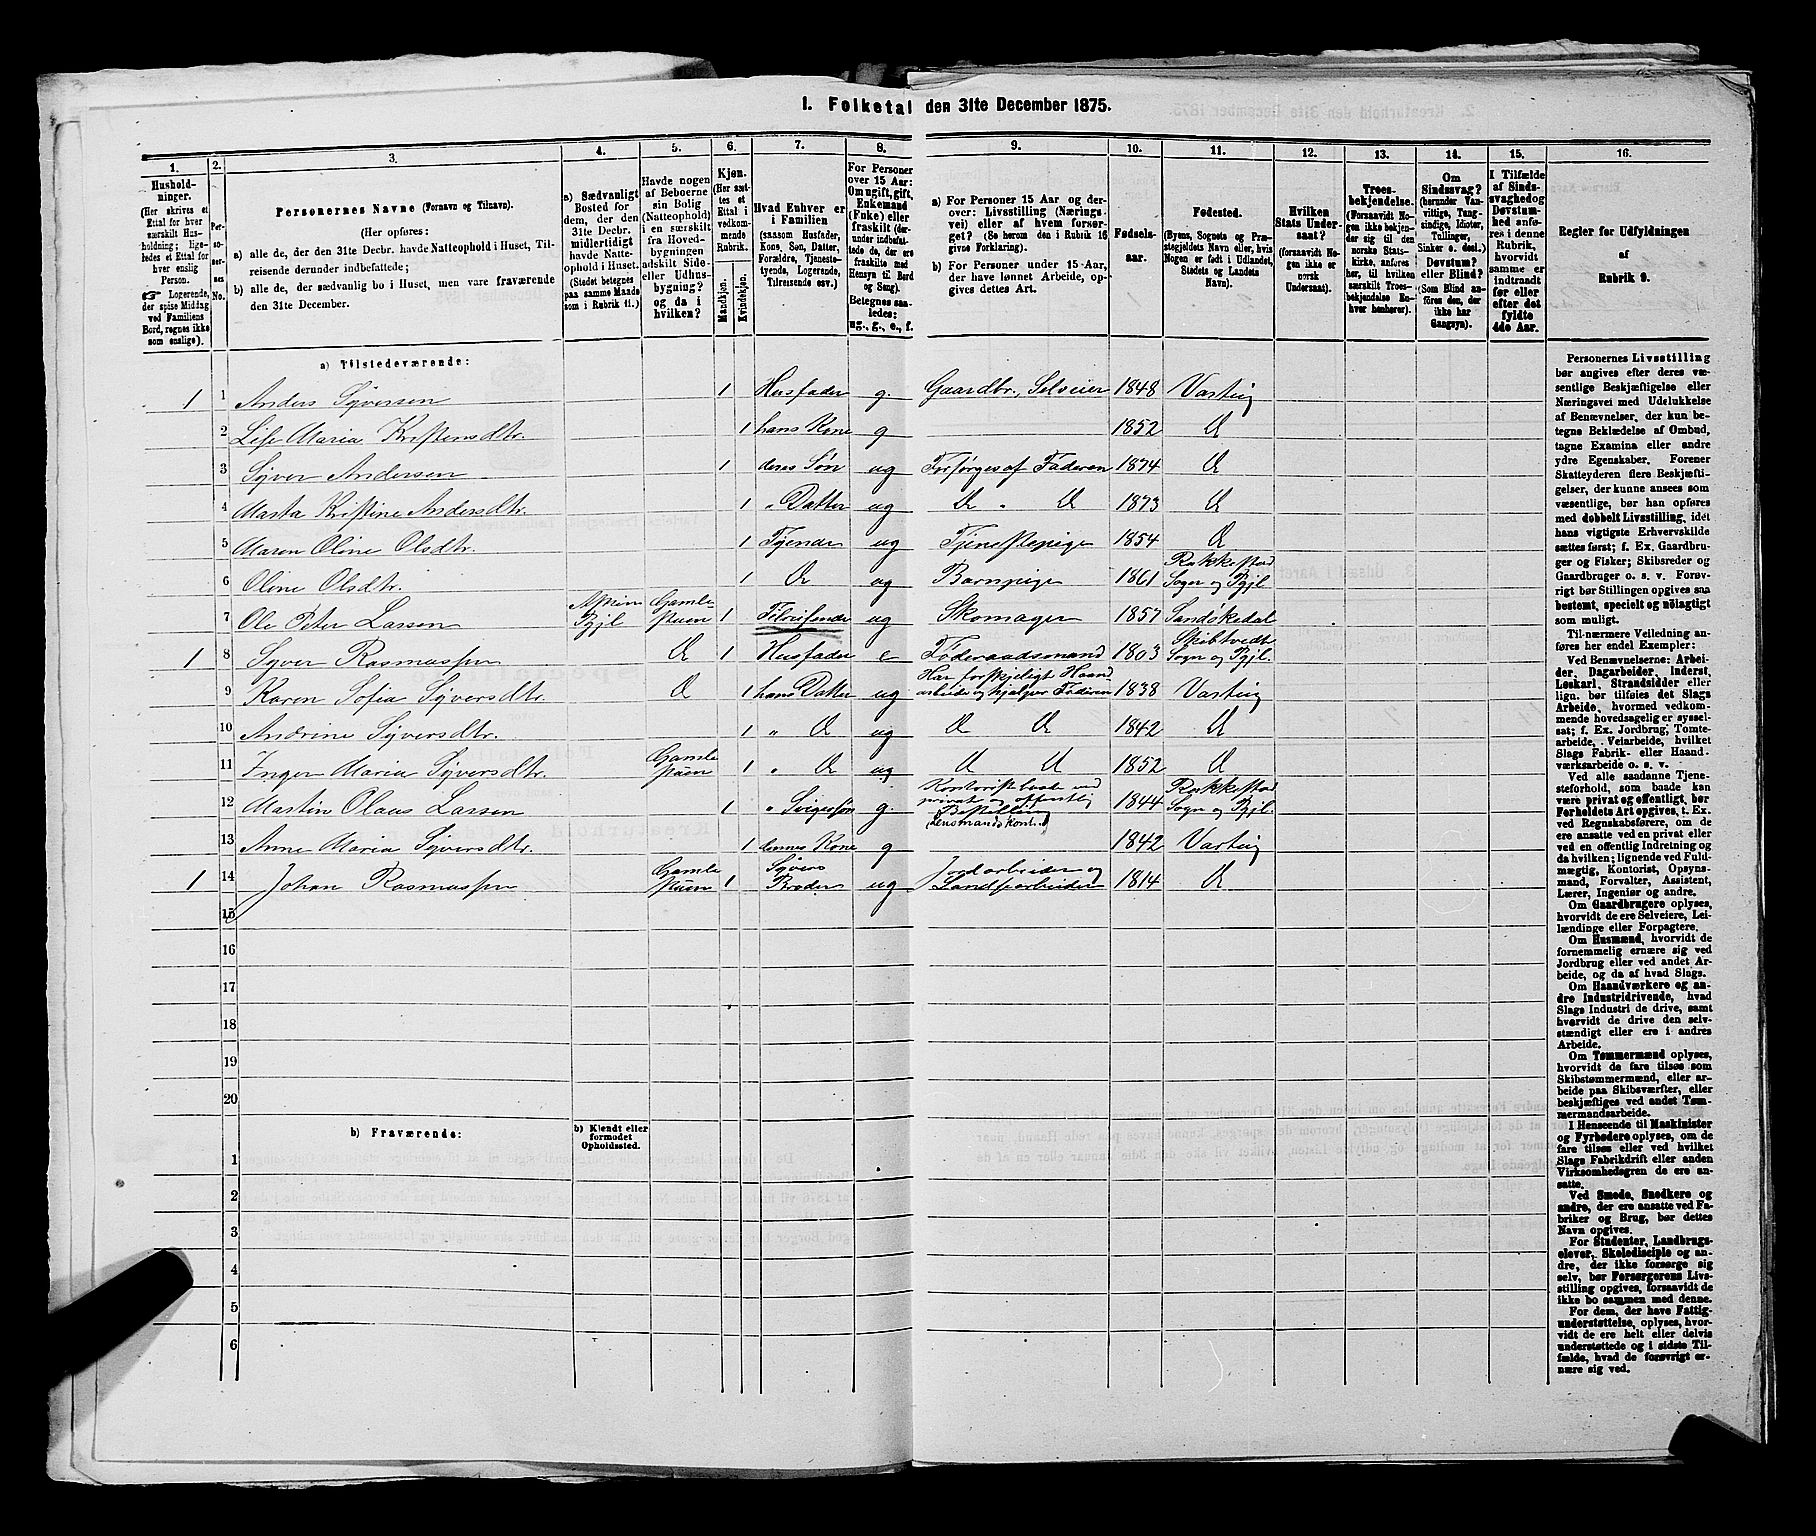 1. Folketal den 31te December 1875.
1. 2. 3. 4. 5. 6. 7. 8. 9. 10. 11. 12. 13. 14. 15. 16.
Hushold-
ninger.
(Her skrives et
Ettal for hver
særskilt Hus-
holdning; lige-
ledes et Ettal for
hver enslig
Person.
☞ Logerende,
der spise Middag
ved Familiens
Bord, regnes ikke
som enslige).
Per-
so-
ner-
nes
No.
Personernes Navne (Fornavn og Tilnavn).
(Her opføres:
a) alle de, der den 31te Decbr. havde Natteophold i Huset, Til-
reisende derunder indbefattede;
b) alle de, der sædvanlig bo i Huset, men vare fraværende
den 31te December.
a) Sædvanligt
Bosted for
dem, der den
31te Decbr.
midlertidigt
havde Natte-
ophold i Huset.
(Stedet betegnes
paa samme Maade
som i Rubrik 11.)
Havde nogen
af Beboerne
sin Bolig
(Natteophold)
i en særskilt
fra Hoved-
bygningen
adskilt Side-
eller Udhus-
bygning?
og da i
hvilken?
Kjøn.
(Her sæt-
tes et
Ettal i
vedkom-
mende
Rubrik.
Mandkjøn.
Kvindekjøn.
Hvad Enhver er
i Familien
(saasom Husfader,
Kone, Søn, Datter,
Forældre, Tjeneste-
tyende, Logerende,
Tilreisende osv.)
For Personer
over 15 Aar:
Om ugift, gift,
Enkemand
(Enke) eller
fraskilt (der-
under indbefat-
tede de, der ere
fraskilte med
Hensyn til Bord
og Seng).
Betegnes saa-
ledes:
ug., g., e., f.
a) For Personer 15 Aar og der-
over: Livsstilling (Nærings-
vei) eller af hvem forsør-
get? (Se herom den i Rubrik 16
givne Forklaring).
b) For Personer under 15 Aar,
der have lønnet Arbeide, op-
gives dettes Art.
Fødsels-
aar.
Fødested.
(Byens, Sognets og Præ-
stegjeldets Navn eller, hvis
Nogen er født i Udlandet,
Stedets og Landets
Navn).
Hvilken
Stats Under-
saat?
(forsaavidt No-
gen ikke er
norsk
Undersaat).
Troes-
bekjendelse.
(Forsaavidt No-
gen ikke bekjen-
der sig til den
norske Stats-
kirke, anføres
her, til hvilken
særskilt Troes-
bekjendelse En-
hver henhører).
Om
Sindssvag?
(herunder Van-
vittige, Tung-
sindige, Idioter,
Tullinger,
Sinker o. desl.)
Døvstum?
eller Blind?
(Som Blind an-
føres den, der
ikke har
Gangsyn).
I Tilfælde
af Sinds-
svaghed og
Døvstum-
hed anfø-
res i denne
Rubrik,
hvorvidt
samme er
indtraadt
før eller
efter det
fyldte
4de Aar.
Regler for Udfyldningen
af
Rubrik 9.
a) Tilstedeværende:
1 1 Anders Syversen 1 Husfader g. Gaardbr., Selveier 1848 Varteig
2 Lise Maria Kristensdtr. 1 hans Kone g 1852 d
3 Syver Andersen 1 deres Søn ug Forsørges af Faderen 1874 d
4 Marta Kristine Andersdtr. 1 " Datter ug d " d 1873 d
5 Maren Oline Olsdtr. 1 Tyende ug Tjenestepige 1854 d
6 Oline Olsdtr. 1 d ug Barnpige 1861 Rakkestad Sogn og Pgjl.
7 Ole Peter Larsen Askim Pgjl Gamle stuen 1 Tilreisende ug Skomager 1857 Sandsketal
1 8 Syver Rasmussen d 1 Husfader e Føderaadsmand 1803 Skibtvedt Sogn og Pgjl.
9 Karen Sofia Syversdtr. d 1 hans Datter ug Har forskjeligt Haand arbeide og hjælper Faderen 1838 Varteig
10 Andrine Syversdtr. 1 " d ug d d 1842 d
11 Inger Maria Syversdtr. Gamle stuen 1 " d ug d d 1852 d
12 Martin Olaus Larsen 1 " Svigersøn g. privat og offentlig Bestilling (Lensmandskont.) 1844 Rakkestad Sogn og Pgjl.
13 Anne Maria Syversdtr. 1 dennes Kone g 1842 Varteig
1 14 Johan Rasmussen Gamle stuen 1 Syvers Broder ug Jordarbeider og 1814 d
15
16
17
18
19
20
b) Fraværende:
b) Kjendt eller
formodet
Opholdssted.
1
2
3
4
5
6
Personernes Livsstilling
bør angives efter deres væ-
sentlige Beskjæftigelse eller
Næringsvei med Udelukkelse
af Benævnelser, der kun be-
tegne Beklædelse af Ombud,
tagne Examina eller andre
ydre Egenskaber. Forener
Skatteyderen flere Beskjæfti-
gelser, der kunne ansees som
væsentlige, bør han opføres
med dobbelt Livsstilling, idet
hans vigtigste Erhvervskilde
sættes først; f. Ex. Gaardbru-
ger og Fisker; Skibsreder og
Gaardbruger o. s. v. Forøv-
rigt bør Stillingen opgives saa
bestemt, specielt og nøiagtigt
som muligt.
Til nærmere Veiledning an-
føres her endel Exempler:
Ved Benævnelserne: Arbei-
der, Dagarbeider, Inderst,
Løskarl, Strandsidder eller
lign. bør tilføies det Slags
Arbeide, hvormed vedkom-
mende hovedsagelig er syssel-
sat; f. Ex. Jordbrug, Tomte-
arbeide, Veiarbeide, hvilket
Slags Fabrik- eller Haand-
værksarbeide o. s. v.
Ved alle saadanne Tjene-
steforhold, som baade kan
være privat og offentligt, bør
Forholdets Art opgives, t. Ex.
ved Regnskabsførere, om de
ere ansatte ved en privat eller
ved en offentlig Indretning og
da hvilken; lignende ved Fuld-
mægtig, Kontorist, Opsyns-
mand, Forvalter, Assistent,
Lærer, Ingeniør og andre.
Om Gaardbrugere oplyses,
hvorvidt de ere Selveiere, Lei-
lændinge eller Forpagtere.
Om Husmænd, hvorvidt de
fornemmelig ernære sig ved
Jordbrug eller ved andet Ar-
beide, og da af hvad Slags.
Om Haandværkere og an-
dre Industridrivende, hvad
Slags Industri de drive, samt
hvorvidt de drive den selv-
stændigt eller ere i andres
Arbeide.
Om Tømmermænd oplyses,
hvorvidt de fare tilsøs som
Skibstømmermænd, eller ar-
beide paa Skibsværfter, eller
beskjæftiges ved andet Tøm-
mermandsarbeide.
I Henseende til Maskinister
og Fyrbødere oplyses, om de
fare tilsøs eller ved hvilket
Slags Fabrikdrift eller anden
Virksomhedsgren de ere an-
satte.
Ved Smede, Snedkere og
andre, der ere ansatte ved Fa-
briker og Brug, bør dettes
Navn opgives.
For Studenter, Landbrugs-
elever, Skoledisciple og an-
dre, der ikke forsørge sig
selv, bør Forsørgerens Livs-
stilling opgives, forsaavidt de
ikke bo sammen med denne.
For dem, der have Fattig-
understøttelse, oplyses, hvor-
vidt de ere helt eller delvis
understøttede og i sidste Til-
fælde, hvad de forøvrigt er-
nære sig ved.